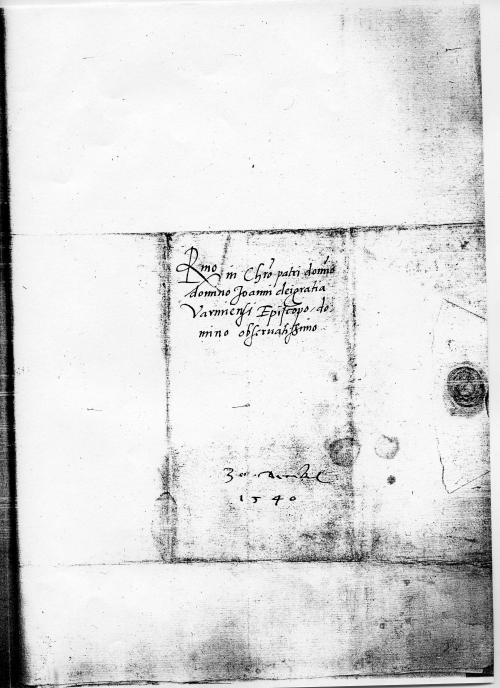 Rmo in Chro patri domino
domino Joanni dei gratia
Varmiensi Episcopo do-
mino obseruatissimo
1540